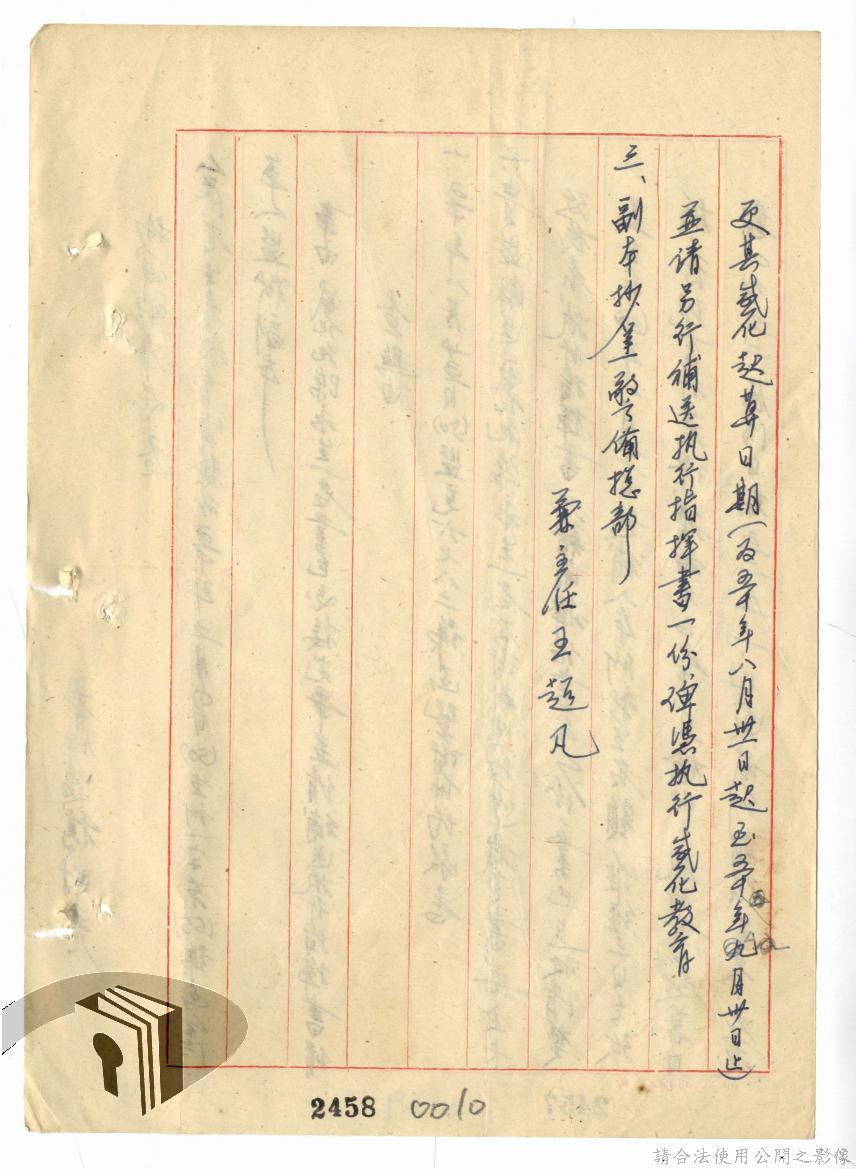 更其感化起算日期（百五十年八月卅一日起至五十年九月卅日止）
並請另行補送執行指揮書一份俾憑執行感化教育
三、副本抄呈警備總部
兼主任王超凡
2458 0010
請合法使用公開之影像